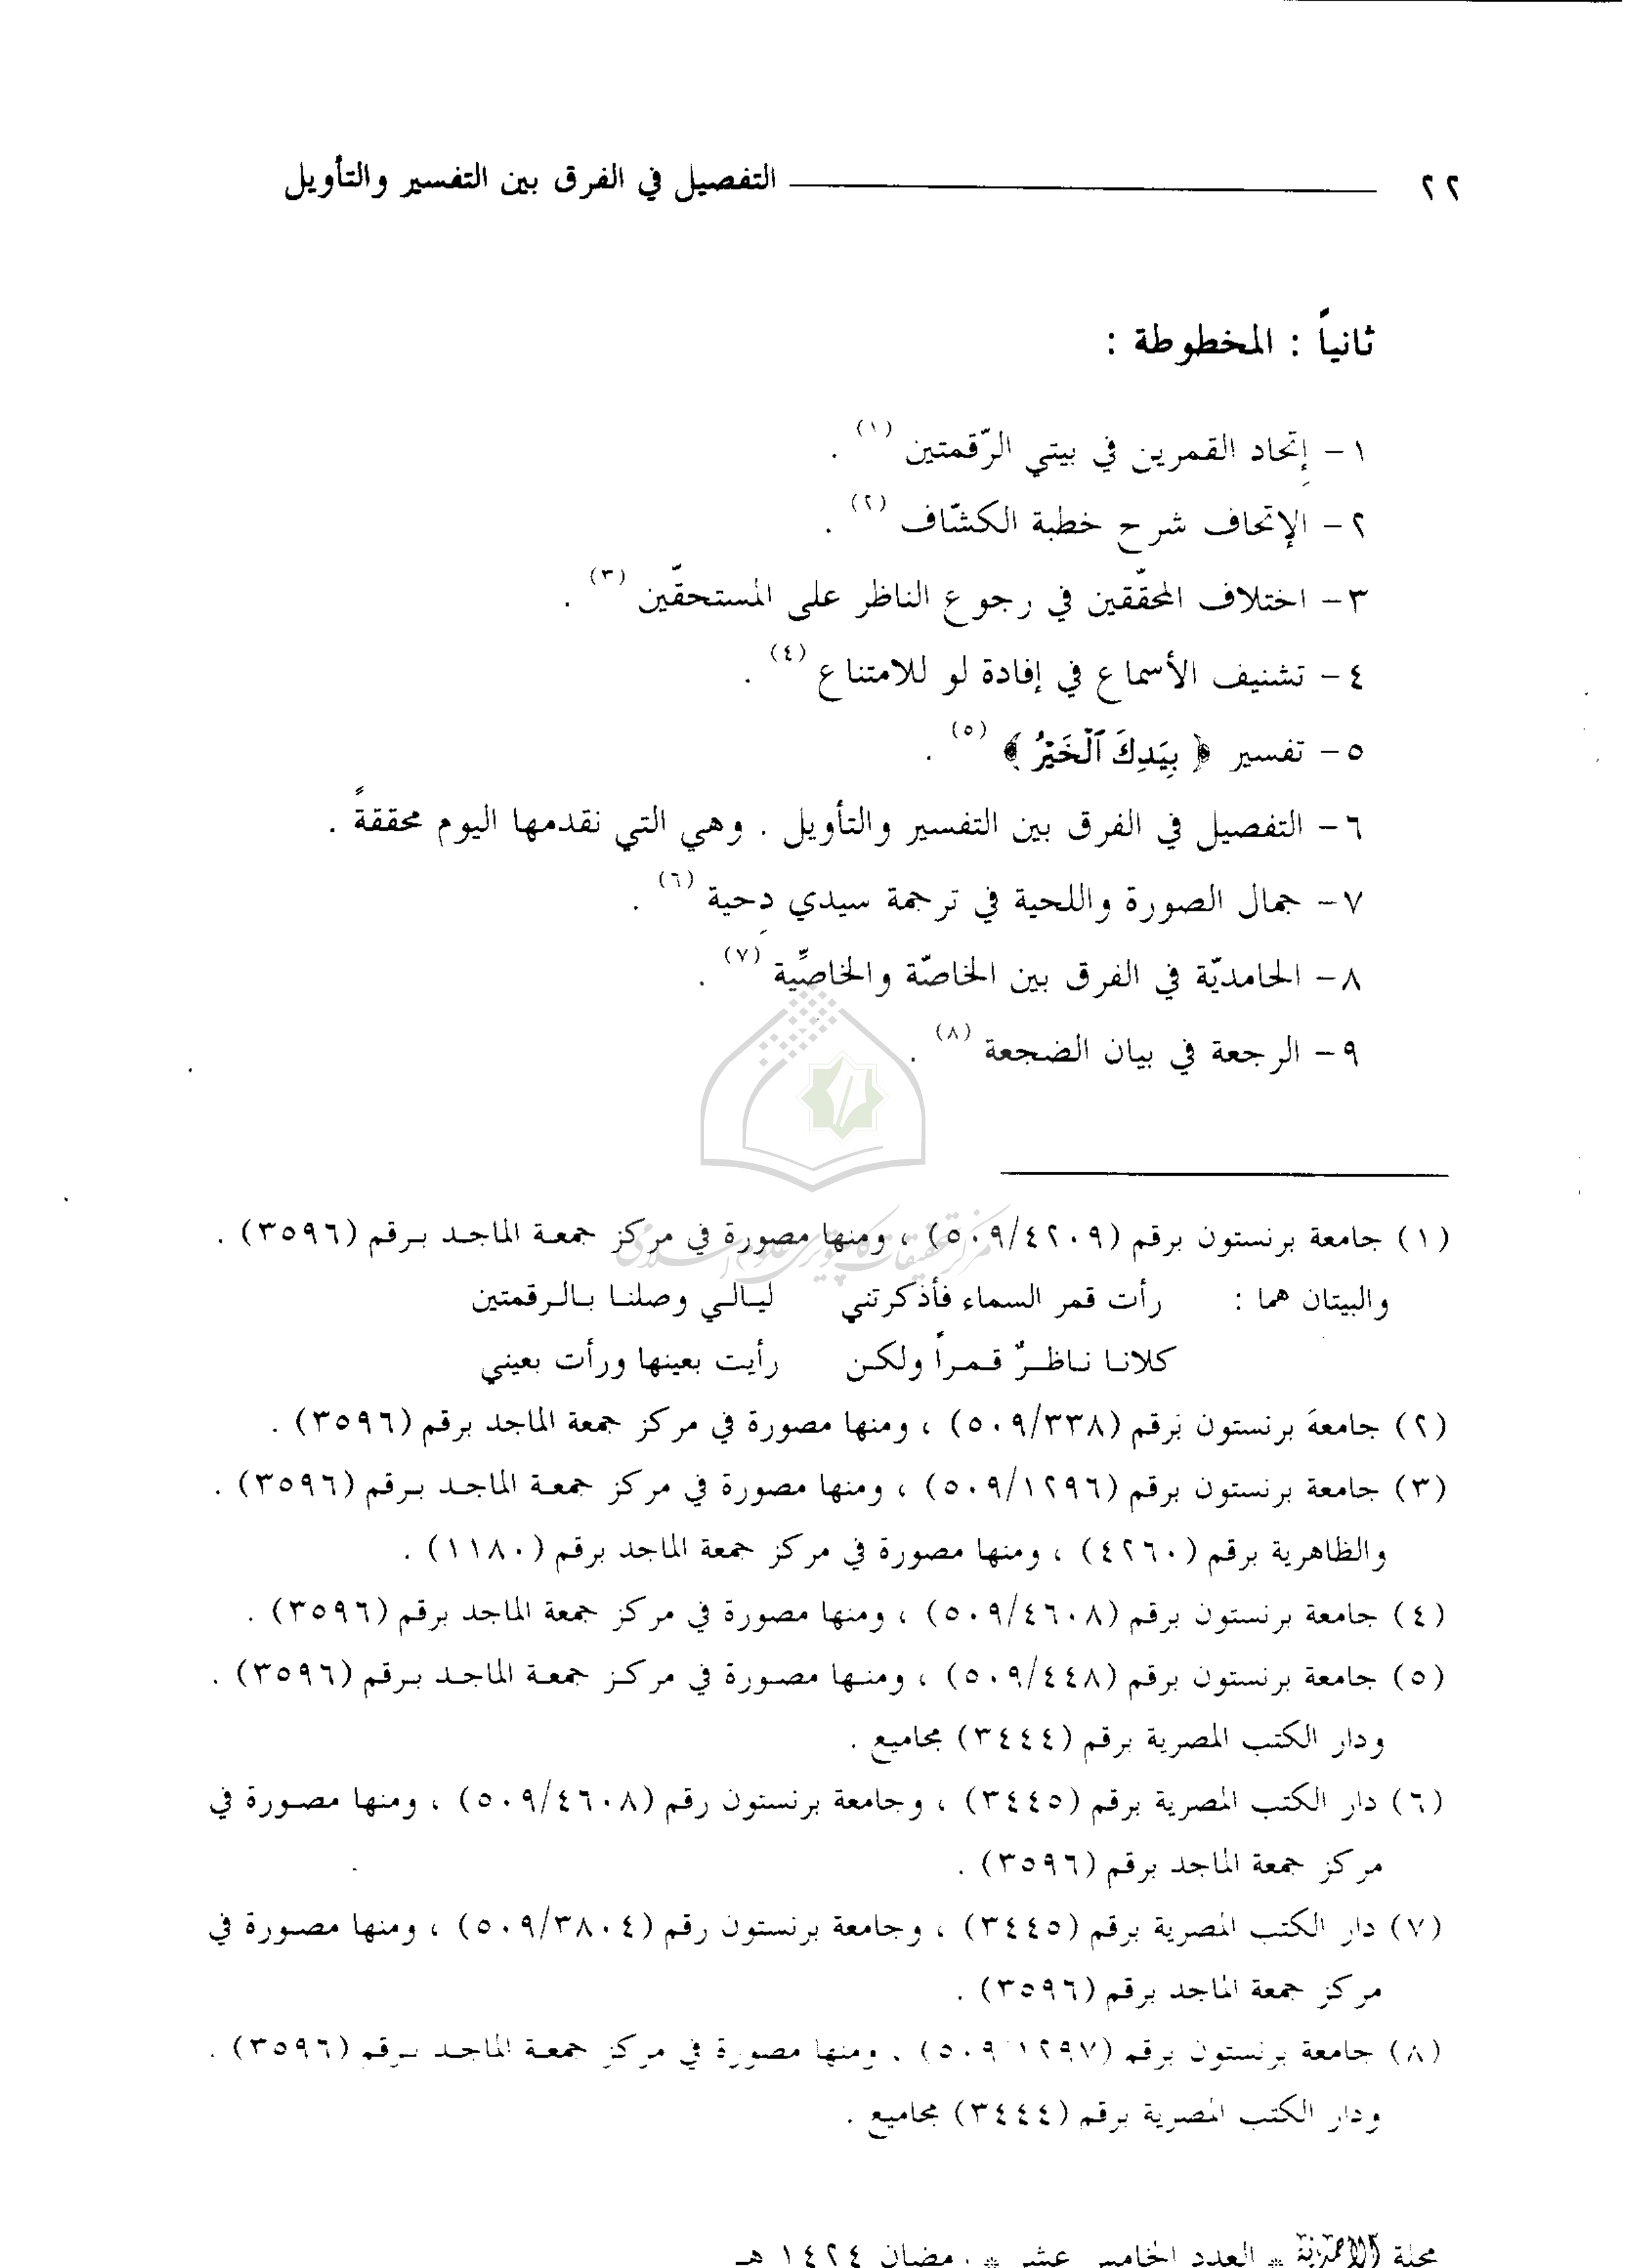 ٢٢ التفصيل في الفرق بين التفسير والتأويل
ثانياً : المخطوطة :
١- إتِحاد القمرين في بيتي الرّقمتين (١) .
٢- الإتحاف شرح خطبة الكشّاف (٢) .
٣- اختلاف المحقّقين في رجوع الناظر على المستحقّين (٣) .
٤- تشنيف الأسماع في إفادة لو للامتناع (٤) .
٥- تفسير ﴿ بِيَدِكَ ٱلْخَيْرُ ﴾ (٥) .
٦- التفصيل في الفرق بين التفسير والتأويل . وهي التي نقدمها اليوم محققةً .
٧- جمال الصورة واللحية في ترجمة سيدي دِحية (٦) .
٨- الحامديّة في الفرق بين الخاصّة والخاصِّية (٧) .
٩- الرجعة في بيان الضجعة (٨) .
(١) جامعة برنستون برقم (٥٠٩/٤٢٠٩) ، ومنها مصورة في مركز جمعة الماجد برقم (٣٥٩٦) .
والبيتان هما : رأت قمر السماء فأذكرتني ليالي وصلنا بالرقمتين
كلانا ناظرٌ قمراً ولكن رأيت بعينها ورأت بعيني
(٢) جامعة برنستون برقم (٥٠٩/٣٣٨) ، ومنها مصورة في مركز جمعة الماجد برقم (٣٥٩٦) .
(٣) جامعة برنستون برقم (٥٠٩/١٢٩٦) ، ومنها مصورة في مركز جمعة الماجد برقم (٣٥٩٦) .
والظاهرية برقم (٤٢٦٠) ، ومنها مصورة في مركز جمعة الماجد برقم (١١٨٠) .
(٤) جامعة برنستون برقم (٥٠٩/٤٦٠٨) ، ومنها مصورة في مركز جمعة الماجد برقم (٣٥٩٦) .
(٥) جامعة برنستون برقم (٥٠٩/٤٤٨) ، ومنها مصورة في مركز جمعة الماجد برقم (٣٥٩٦) .
ودار الكتب المصرية برقم (٣٤٤٤) مجاميع .
(٦) دار الكتب المصرية برقم (٣٤٤٥) ، وجامعة برنستون رقم (٥٠٩/٤٦٠٨) ، ومنها مصورة في
مركز جمعة الماجد برقم (٣٥٩٦) .
(٧) دار الكتب المصرية برقم (٣٤٤٥) ، وجامعة برنستون رقم (٥٠٩/٣٨٠٤) ، ومنها مصورة في
مركز جمعة الماجد برقم (٣٥٩٦) .
(٨) جامعة برنستون برقم (٥٠٩/١٢٩٧) ، ومنها مصورة في مركز جمعة الماجد برقم (٣٥٩٦) .
ودار الكتب المصرية برقم (٣٤٤٤) مجاميع .
مجلة الأحمدية * العدد الخامس عشر * رمضان ١٤٢٤ هـ